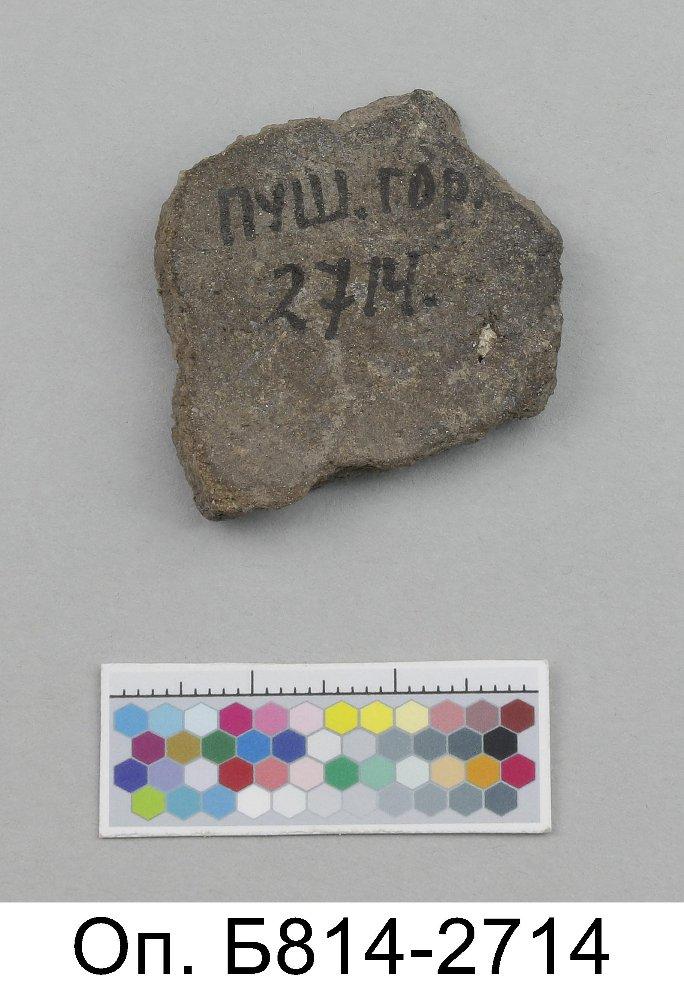 ПУШ. ГОР.
2714.
Оп. Б814-2714